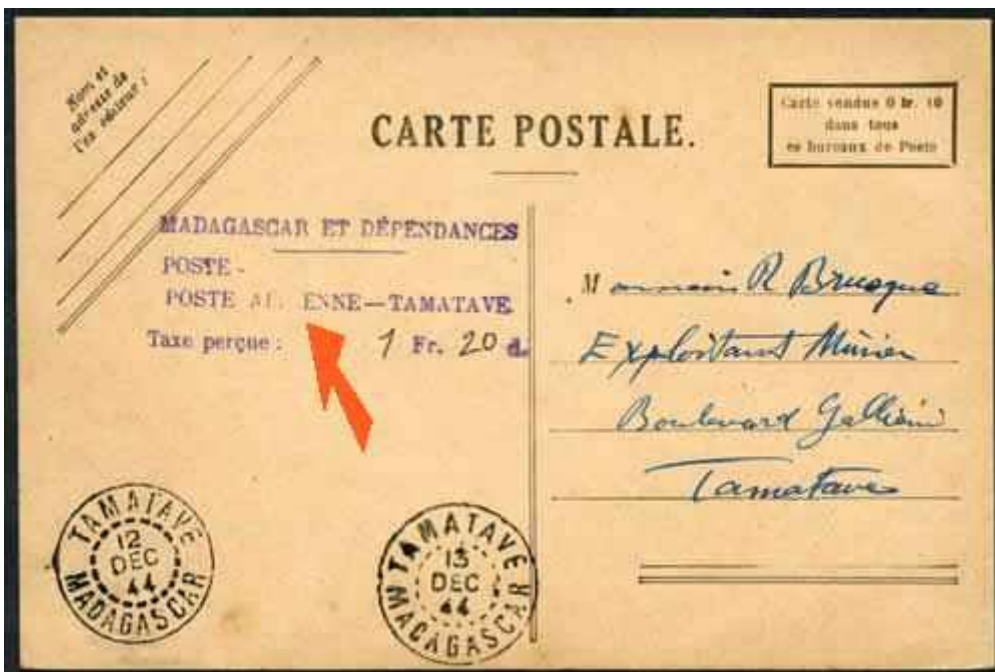 Nom et
adresse de
CARTE POSTALE.
Carte vendue 0 fr. 10
dans tous
es bureaux de Poste
MADAGASCAR ET DÉPENDANCES
POSTE -
POSTE AÉ ENNE—TAMATAVE
Taxe perçue : 1 Fr. 20
Monsieur R
Exploitant Minier
Boulevard Gallieni
Tamatave
TAMATAVE
12
DEC
44
MADAGASCAR
TAMATAVE
13
DEC
44
MADAGASCAR